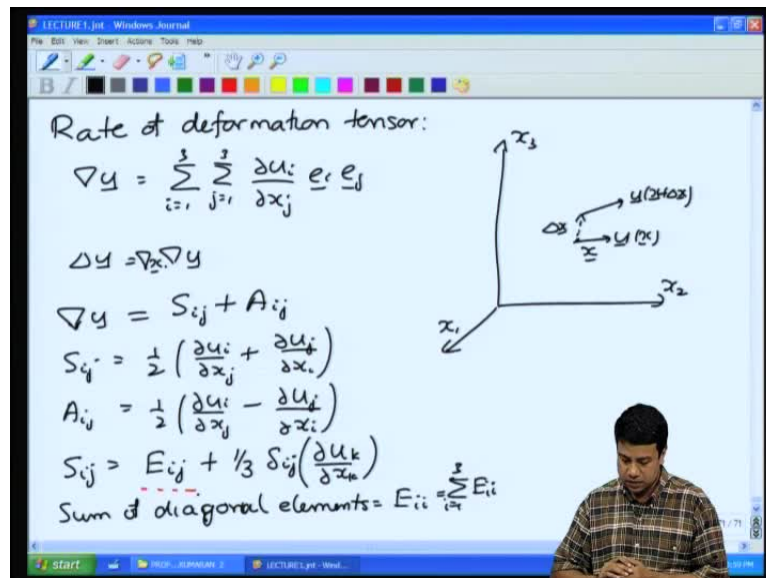 LECTURE1.jnt - Windows Journal
File Edit View Insert Actions Tools Help
B I
Rate of deformation tensor:
∇u = Σ_{i=1}^{3} Σ_{j=1}^{3} ∂u_i/∂x_j e_i e_j
Δu = Δx.∇u
∇u = S_ij + A_ij
S_ij = 1/2 (∂u_i/∂x_j + ∂u_j/∂x_i)
A_ij = 1/2 (∂u_i/∂x_j - ∂u_j/∂x_i)
S_ij = E_ij + 1/3 δ_ij (∂u_k/∂x_k)
Sum of diagonal elements = E_ii = Σ_{i=1}^{3} E_ii
x_3
u(x+Δx)
Δx
u(x)
x
x_2
x_1
71 / 71
start
LECTURE1.jnt - Wind...